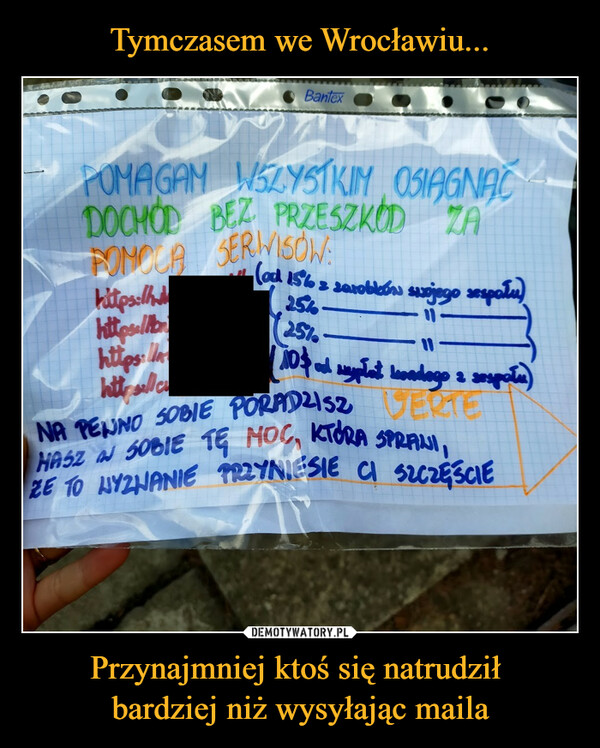 Tymczasem we Wrocławiu...
Bantex
POMAGAM WSZYSTKIM OSIĄGNĄĆ
DOCHÓD BEZ PRZESZKÓD ZA
POMOCĄ SERWISÓW:
https:// (od 15% z zarobków swojego zespołu)
https:// ( 25% —— 11 —— )
https:// ( 25% —— 11 —— )
https:// (10$ od wypłat każdego z zespołu)
NA PEWNO SOBIE PORADZISZ VERTE
MASZ W SOBIE TĘ MOC, KTÓRA SPRAWI,
ŻE TO WYZWANIE PRZYNIESIE CI SZCZĘŚCIE
DEMOTYWATORY.PL
Przynajmniej ktoś się natrudził
bardziej niż wysyłając maila